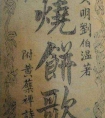 大明劉伯溫著
燒餅歌
附黃蘗禪師詩